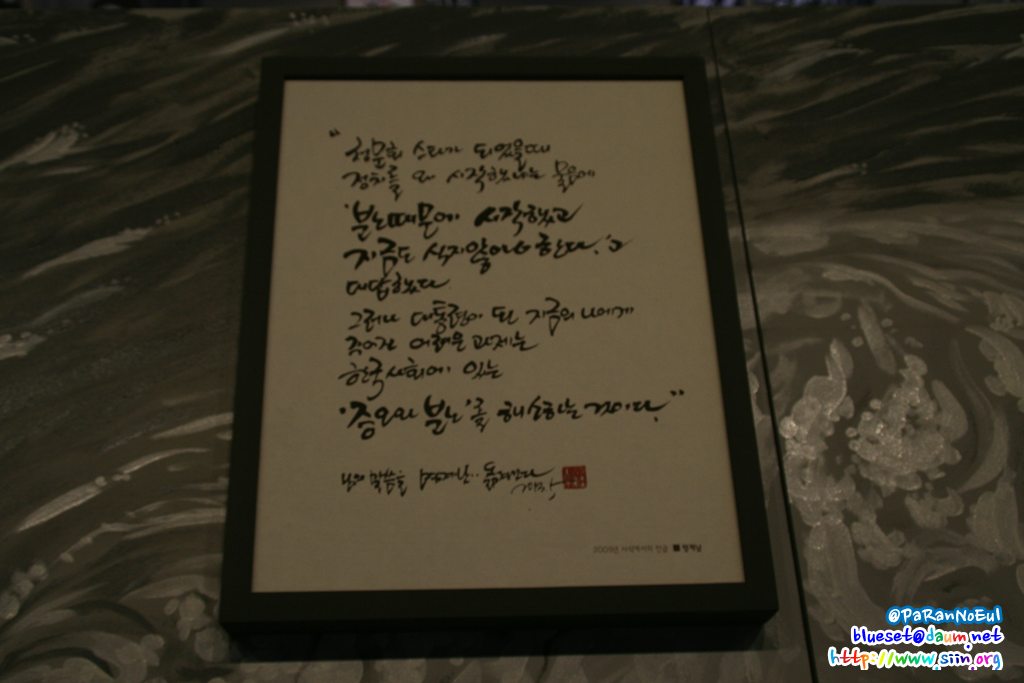 “ 청문회 스타가 되었을때
정치를 왜 시작했냐는 물음에
'분노때문에 시작했고
지금도 식지않아야 한다.'고
대답했다.
그러나 대통령이 된 지금의 나에게
주어진 어려운 과제는
한국사회에 있는
'증오와 분노'를 해소하는 것이다.”
님의 말씀을
2009년
@PaRanNoEul
blueset@daum.net
http://www.siin.org